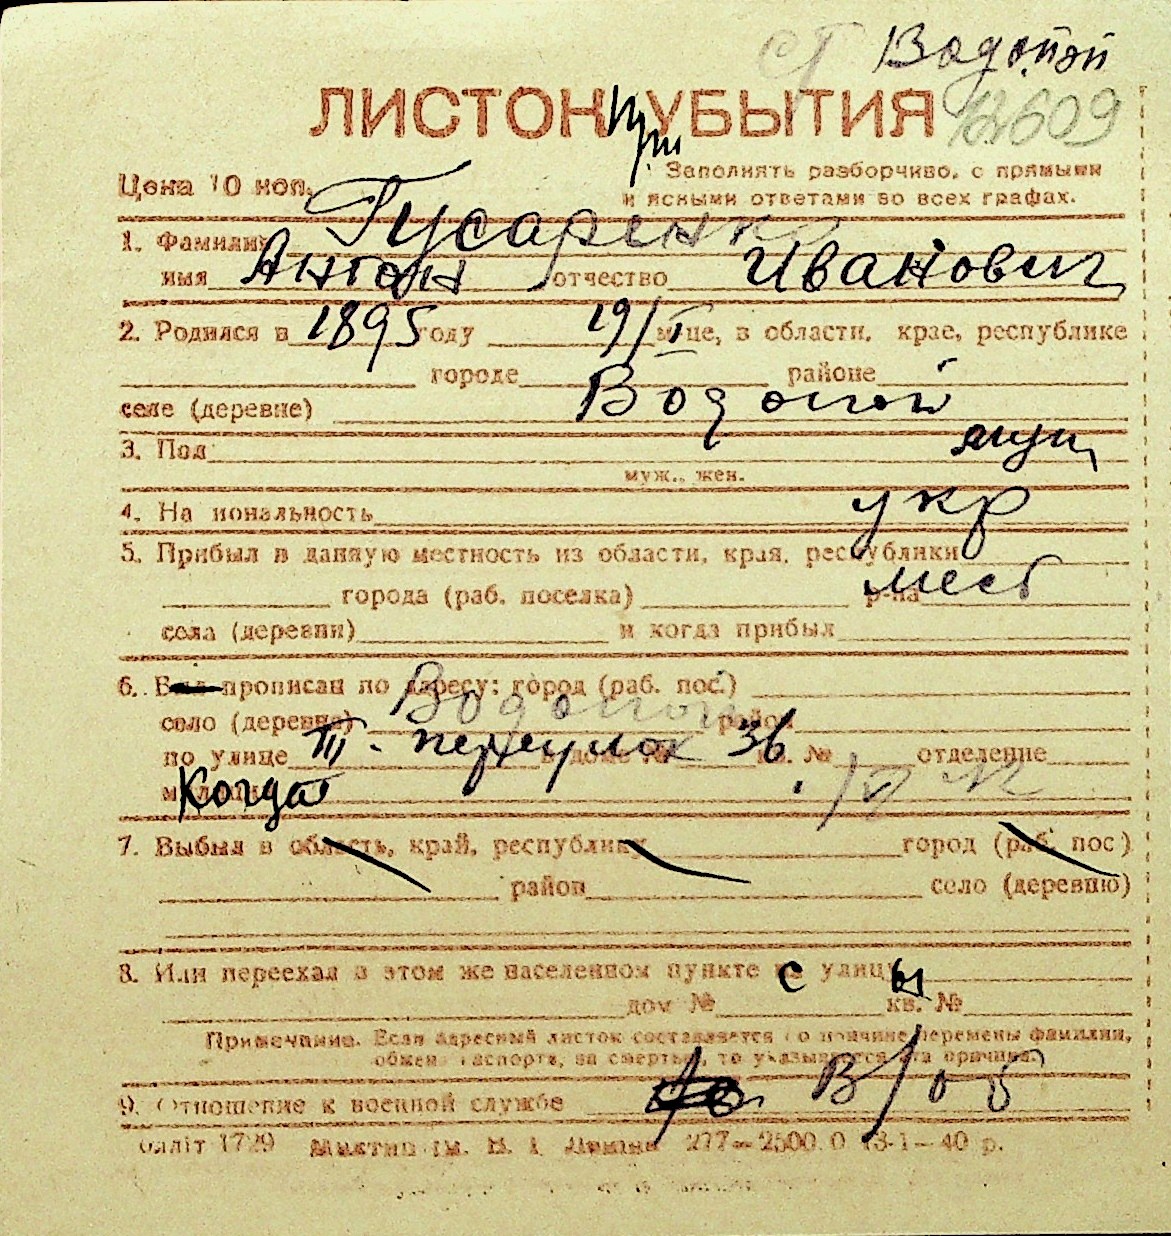 ст Водопой
ЛИСТОК При УБЫТИЯ 12609
Цена 10 коп. Заполнять разборчиво, с прямыми
и ясными ответами во всех графах.
1. Фамилия Гусаренко
имя Антон отчество Иванович
2. Родился в 1895 году 19/I м-це, в области, крае, республике
городе районе
селе (деревне) Водопой
3. Пол муж
муж., жен.
4. На иональность укр
5. Прибыл в данную местность из области, края, республики
города (раб. поселка) р-на мест
села (деревни) и когда прибыл
6. Был прописан по адресу: город (раб. пос.)
село (деревне) Водопой район
по улице III - переулок 36 в доме № кв. № отделение
милиции Когда
7. Выбыл в область, край, республику город (раб. пос)
район село (деревню)
8. Или переехал в этом же населенном пункте с улицы
дом № кв. №
Примечание. Если адресный листок составляется по причине перемены фамилии,
обмена паспорта, за смертью, то указывается эта причина.
9. Отношение к военной службе в/об
блліт 1729 Миктип ім. В. І. Леніна 277—2500.0 13-1—40 р.